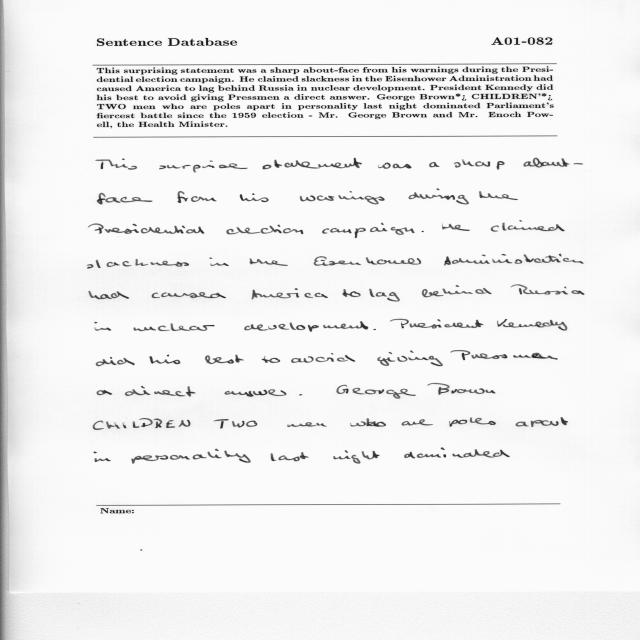 Sentence Database A01-082
This surprising statement was a sharp about-face from his warnings during the Presi-
dential election campaign. He claimed slackness in the Eisenhower Administration had
caused America to lag behind Russia in nuclear development. President Kennedy did
his best to avoid giving Pressmen a direct answer. George Brown*¿ CHILDREN'*¿
TWO men who are poles apart in personality last night dominated Parliament's
fiercest battle since the 1959 election - Mr. George Brown and Mr. Enoch Pow-
ell, the Health Minister.
This surprise statement was a sharp about-
face from his warnings during the
Presidential election campaign. He claimed
slackness in the Eisenhower Administration
had caused America to lag behind Russia
in nuclear development. President Kennedy
did his best to avoid giving Pressmen
a direct answer. George Brown
CHILDREN TWO men who are poles apart
in personality last night dominated
Name: